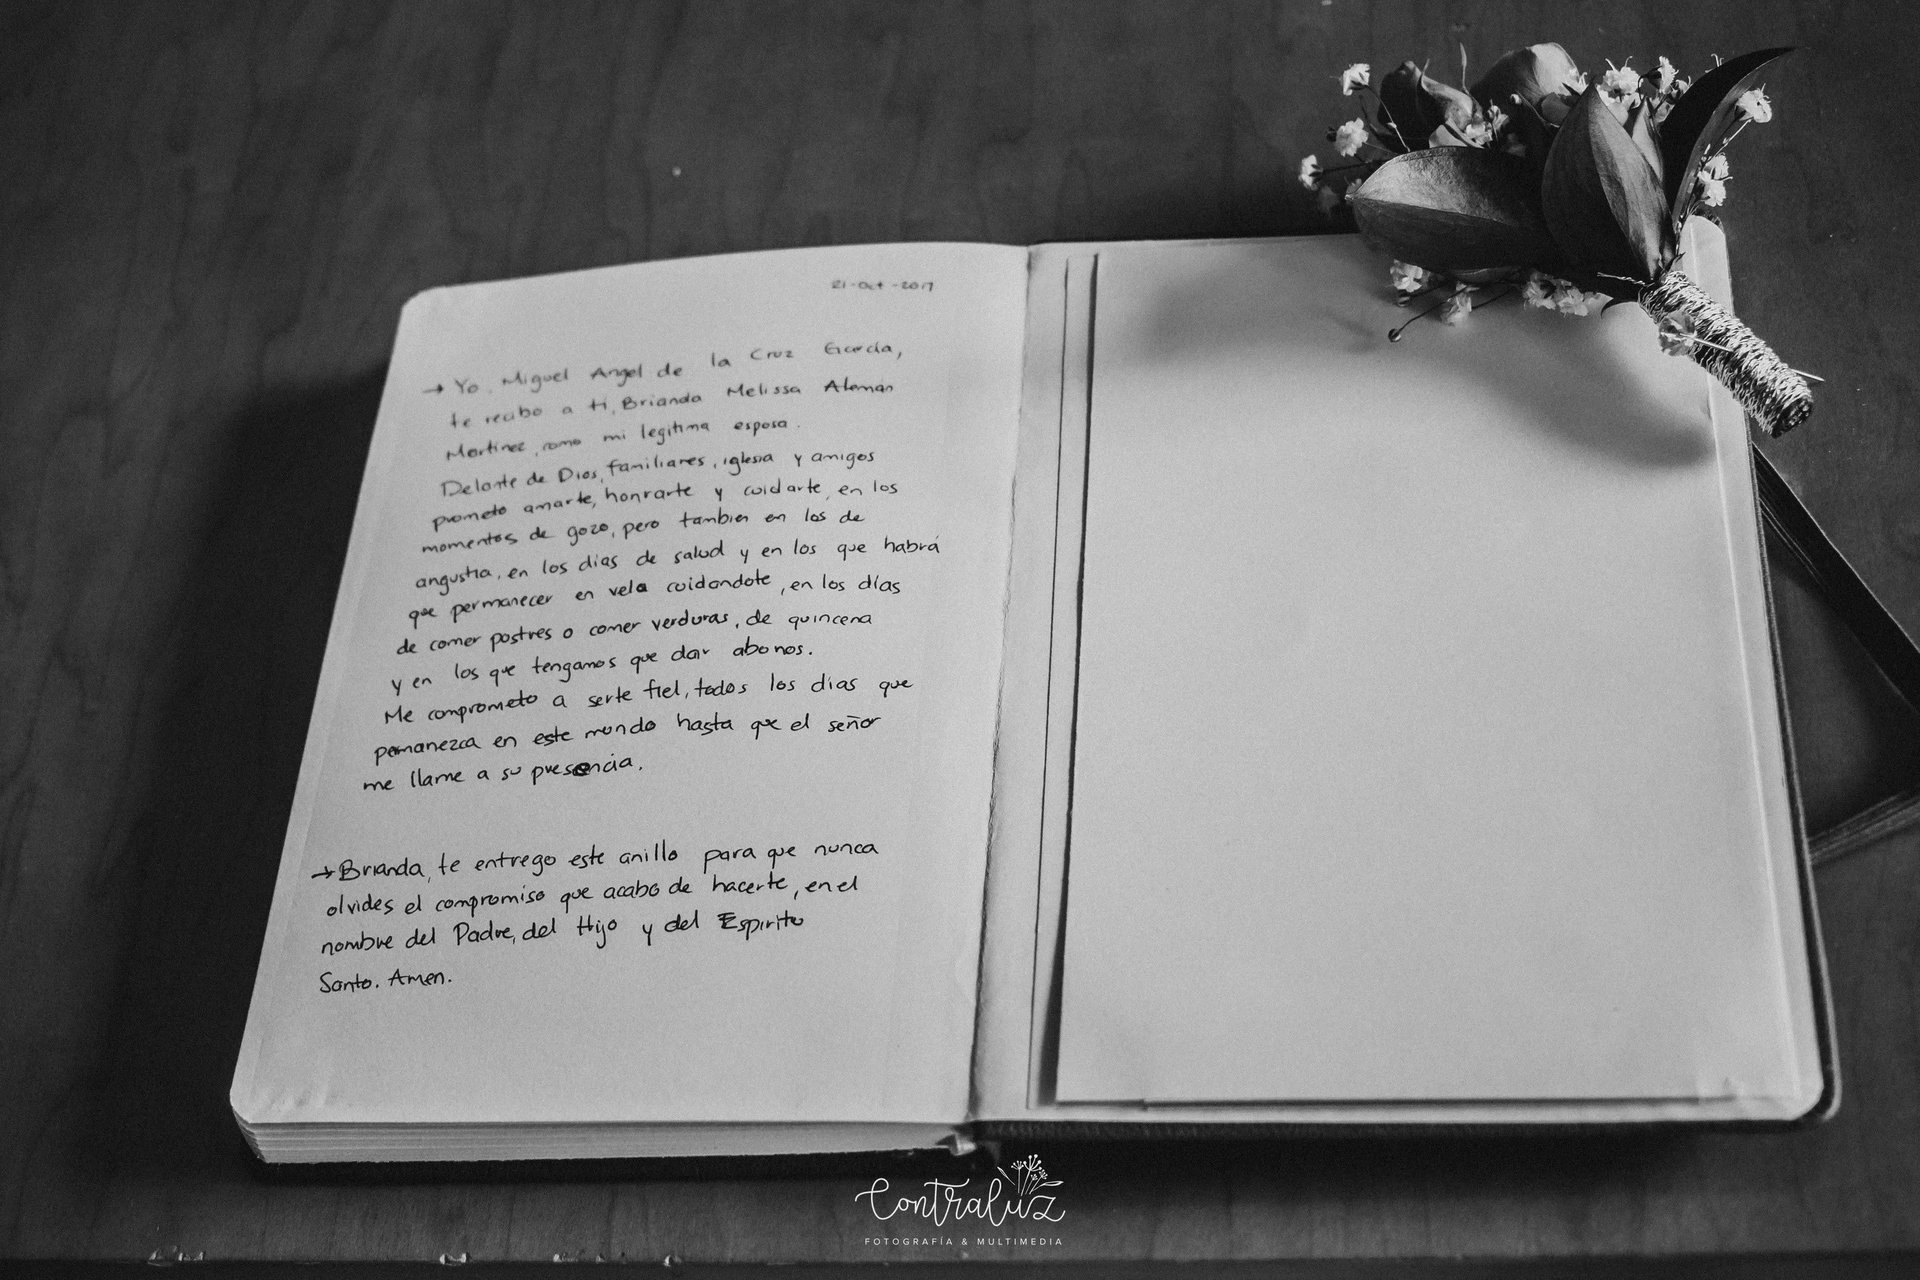 21-Oct-2017
→ Yo, Miguel Angel de la Cruz García,
te recibo a ti, Brianda Melissa Aleman
Martinez, como mi legitima esposa.
Delante de Dios, familiares, iglesia y amigos
prometo amarte, honrarte y cuidarte, en los
momentos de gozo, pero tambien en los de
angustia, en los dias de salud y en los que habrá
que permanecer en vela cuidandote, en los días
de comer postres o comer verduras, de quincena
y en los que tengamos que dar abonos.
Me comprometo a serte fiel, todos los dias que
permanezca en este mundo hasta que el señor
me llame a su presencia.
→ Brianda, te entrego este anillo para que nunca
olvides el compromiso que acabo de hacerte, en el
nombre del Padre, del Hijo y del Espiritu
Santo. Amen.
Contraluz
FOTOGRAFÍA & MULTIMEDIA